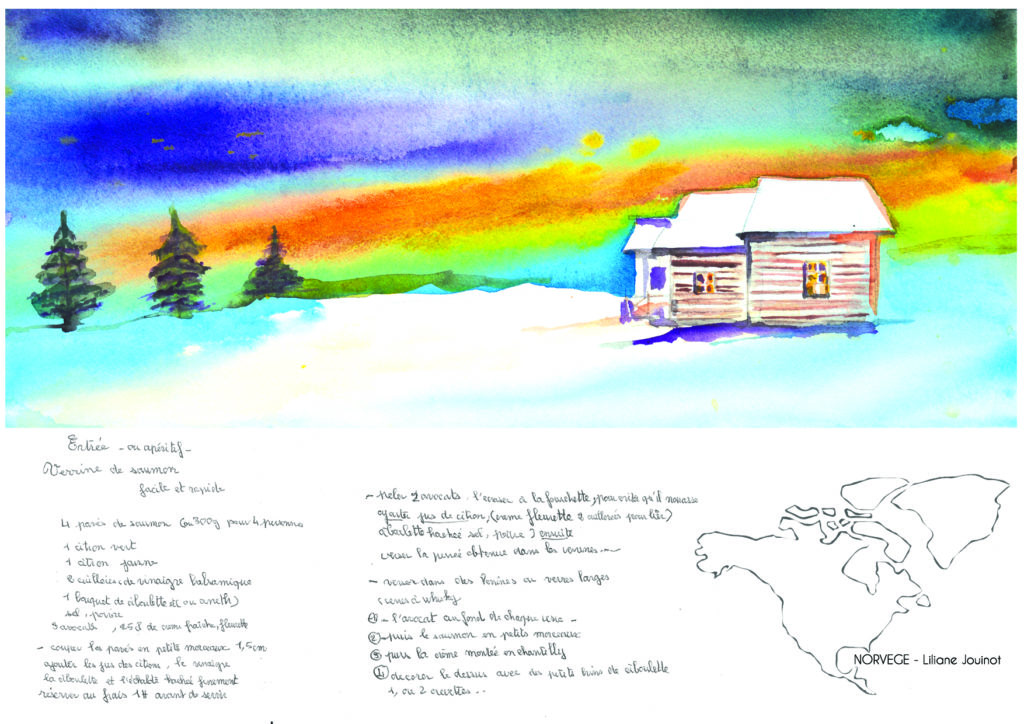 Entrée - ou apéritif -
Verrine de saumon
facile et rapide
4 pavés de saumon (ou 300g pour 4 personnes
1 citron vert
1 citron jaune
2 cuillères de vinaigre balsamique
1 bouquet de ciboulette (ou aneth)
sel, poivre
3 avocats, 25 de crème fraîche, fleurette
- couper les pavés en petits morceaux 1,5cm
ajouter les jus des citrons, le vinaigre
la ciboulette et l'échalote haché finement
réserver au frais 1H avant de servir
- peler 2 avocats, l'écraser à la fourchette, pour éviter qu'il noircisse
ajouter jus de citron, (crème fleurette 2 cuillères pour lier)
ciboulette hachée sel, poivre) ensuite
verser la purée obtenue dans les verrines...
- verser dans des verrines ou verres larges
(verres à whisky
① - l'avocat au fond de chaque verre -
② - puis le saumon en petits morceaux
③ puis la crème montée en chantilly
④ décorer le dessus avec des petits brins de ciboulette
1, ou 2 crevettes...
NORVEGE - Liliane Jouinot